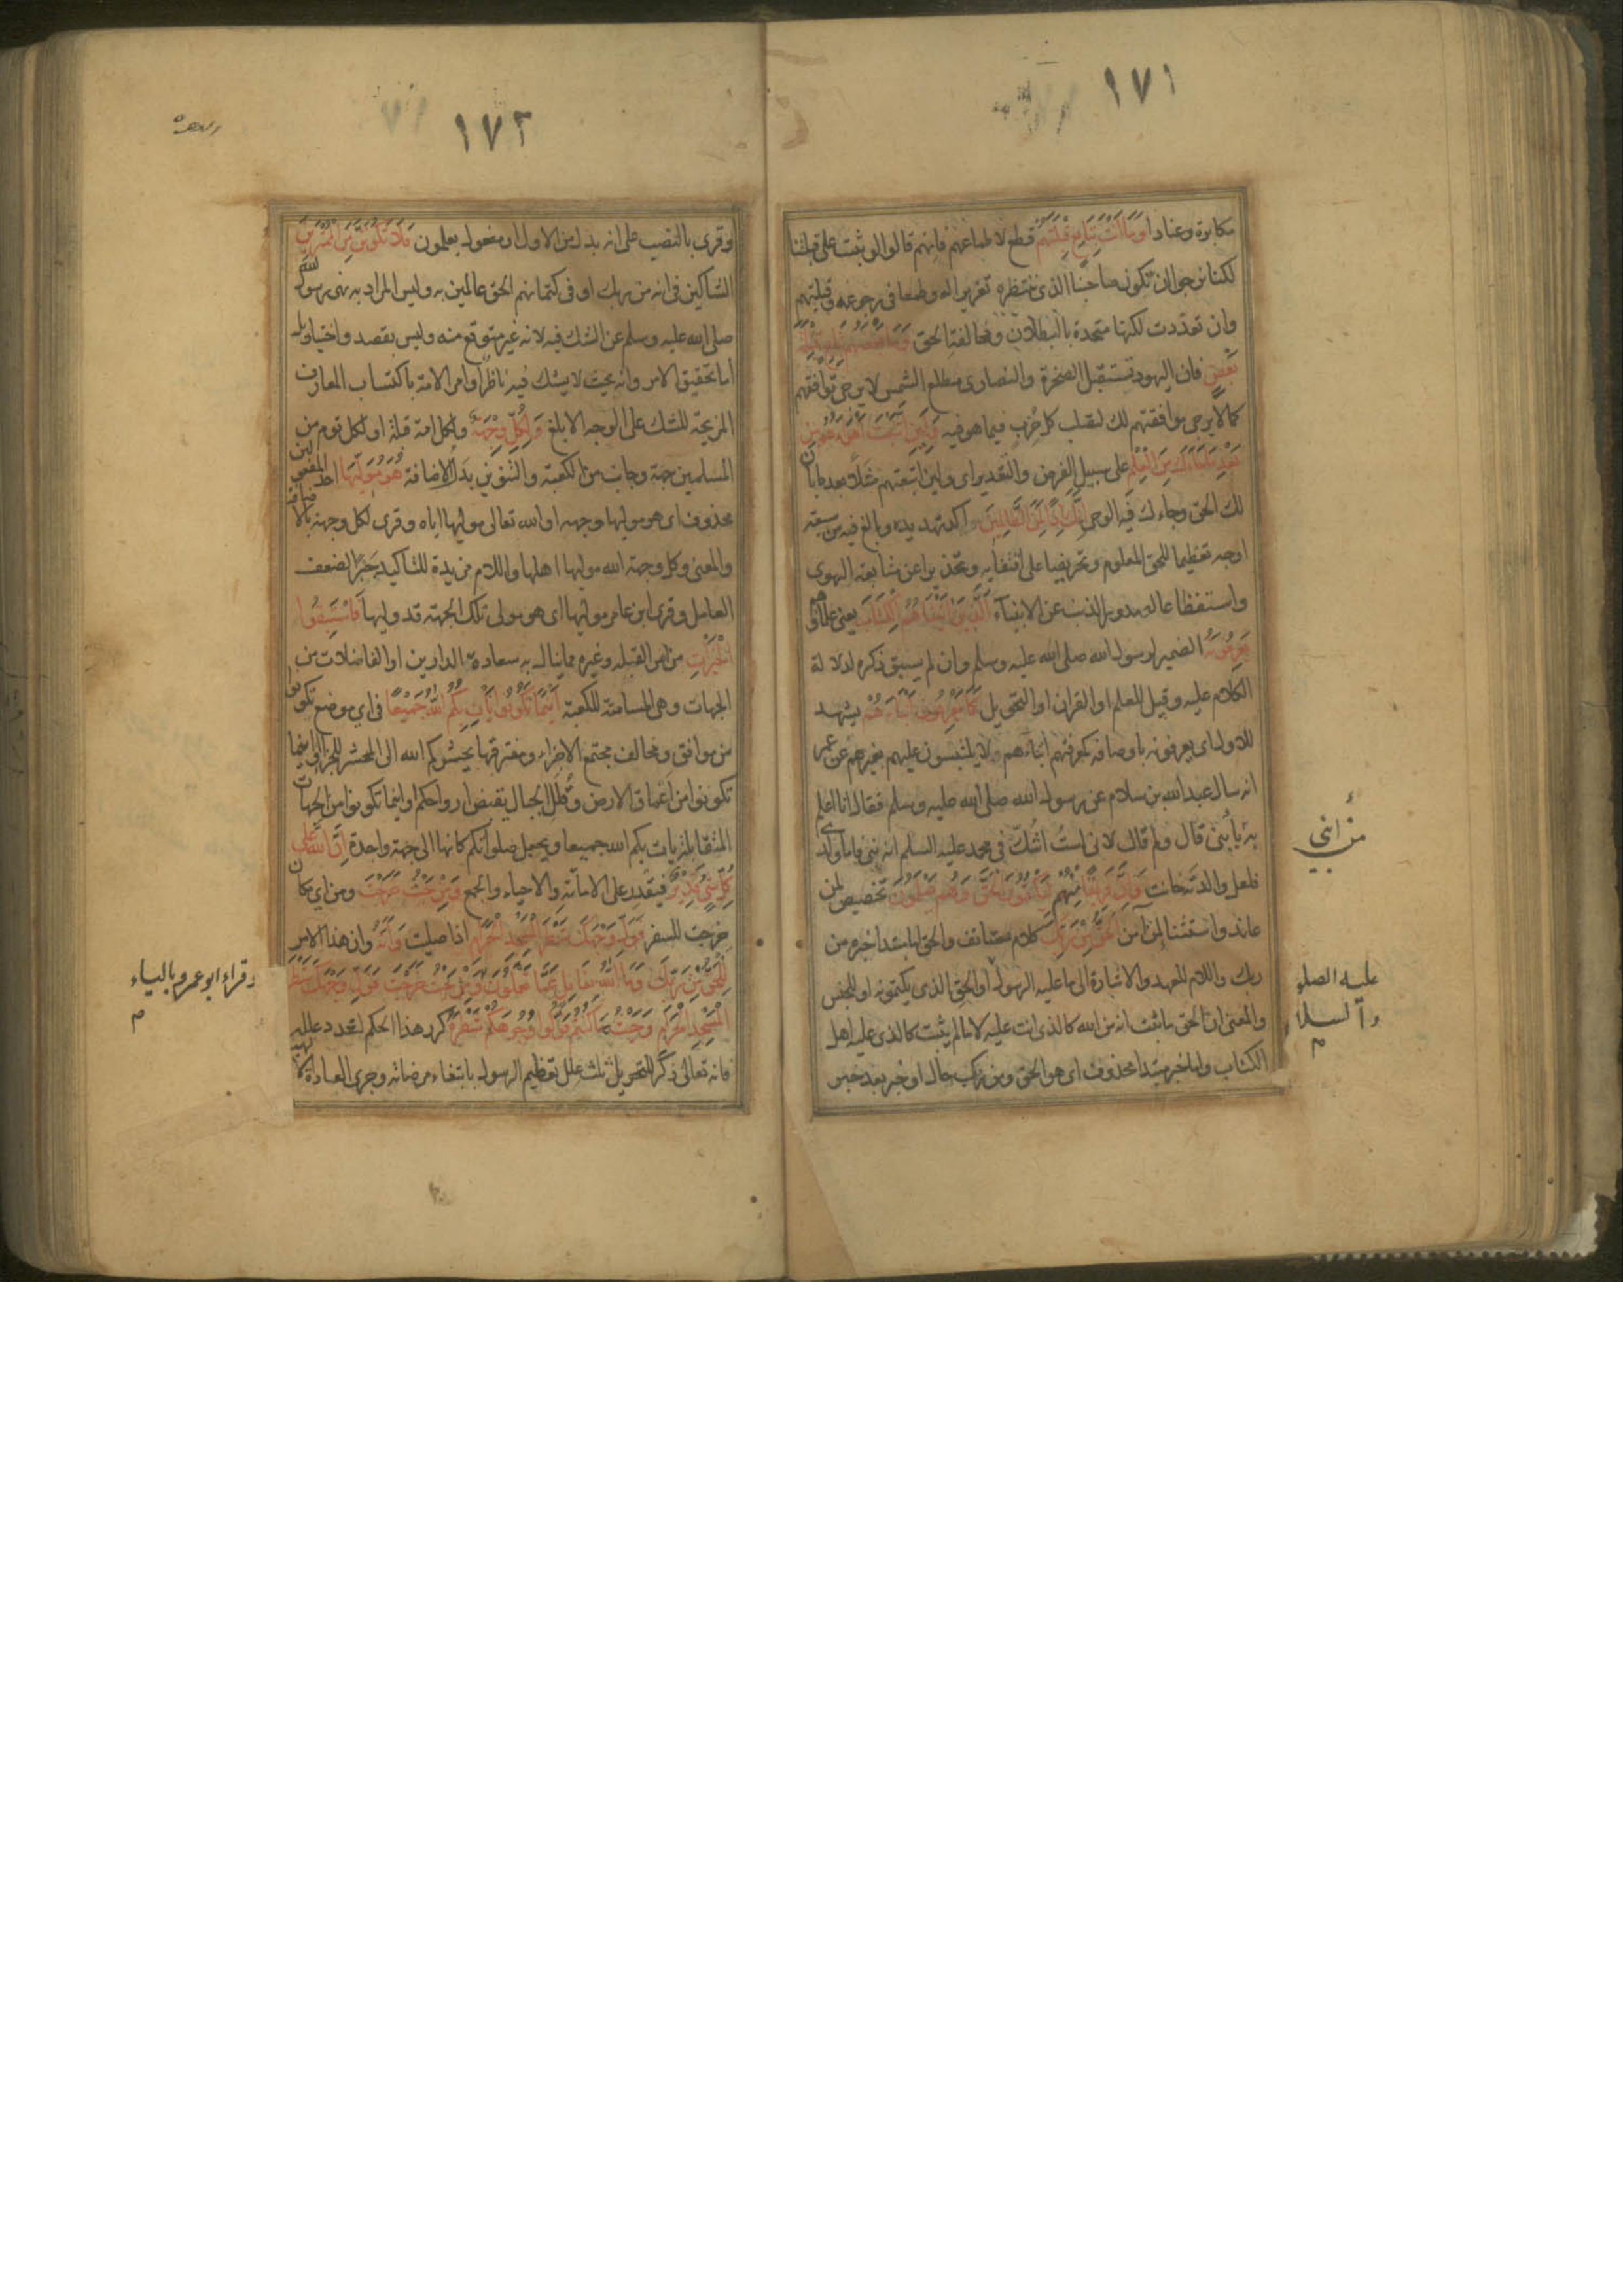 ١٧١
مكابرة وعنادا وَمَا أَنْتَ بِتَابِعٍ قِبْلَتَهُمْ قطع لاطماعهم فانهم قالوا لو ثبت على قبلتنا
لكنا نرجوا ان تكون صاحبنا الذى ننتظره تغريرا له وطمعا فى رجوعه وقبلتهم
وان تعددت لكنها متحدة بالبطلان ومخالفة الحق وَمَا بَعْضُهُمْ بِتَابِعٍ قِبْلَةَ
بَعْضٍ فان اليهود تستقبل الصخرة والنصارى مطلع الشمس لا يرجى توافقهم
كما لا يرجى موافقتهم لك لتصلب كل حزب فيما هو فيه وَلَئِنِ اتَّبَعْتَ أَهْوَاءَهُمْ مِنْ
بَعْدِ مَا جَاءَكَ مِنَ الْعِلْمِ على سبيل الفرض والتقدير اى ولئن اتبعتهم مثلا بعد ما بان
لك الحق وجاءك فيه الوحى إِنَّكَ إِذًا لَمِنَ الظَّالِمِينَ واكد تهديده وبالغ فيه من سبعة
اوجه تعظيما للحق المعلوم وتحريضا على اقتفايه وتحذيرا عن متابعة الهوى
واستفظاعا لصدور الذنب عن الانبياء الَّذِينَ آتَيْنَاهُمُ الْكِتَابَ يعنى علماؤهم
يَعْرِفُونَهُ الضمير لرسول الله صلى الله عليه وسلم وان لم يسبق ذكره لدلالة
الكلام عليه وقيل للعلم او القران او التحويل كَمَا يَعْرِفُونَ أَبْنَاءَهُمْ يشهد
للاول اى يعرفونه باوصافه كمعرفتهم ابناءهم ولا يلتبسون عليهم بغيرهم عن عمر
انه سال عبد الله بن سلام عن رسول الله صلى الله عليه وسلم فقال انا اعلم
به يا بنى قال ولم قال لانى لست اشك فى محمد عليه السلم انه نبى فاما ولدى
فلعل والدته خانت وَإِنَّ فَرِيقًا مِنْهُمْ لَيَكْتُمُونَ الْحَقَّ وَهُمْ يَعْلَمُونَ تخصيص لمن
عاند واستثنا لمن آمن الْحَقُّ مِنْ رَبِّكَ كلام مستانف والحق اما مبتدا خبره من
ربك واللام للعهد والاشارة الى ما عليه الرسول او الحق الذى يكتمونه او للجنس
والمعنى ان الحق ما ثبت انه من الله كالذى انت عليه لا ما لم يثبت كالذى عليه اهل
الكتاب واما خبر مبتدا محذوف اى هو الحق ومن ربك حال او خبر بعد خبر
منى بابنى
عليه الصلوة
والسلام
م
١٧٢
وقرى بالنصب على انه بدل من الاول او مفعول يعلمون فَلَا تَكُونَنَّ مِنَ الْمُمْتَرِينَ
الشاكين فى انه من ربك او فى كتمانهم الحق عالمين به وليس المراد به نهى رسول الله
صلى الله عليه وسلم عن الشك فيه لانه غير متوقع منه وليس بقصد واختيار بل
اما تحقيق الامر وانه بحيث لا يشك فيه ناظر او امر الامة باكتساب المعارف
المزيحة للشك على الوجه الابلغ وَلِكُلٍّ وِجْهَةٌ ولكل امة قبلة او لكل قوم من
المسلمين جهة وجانب من الكعبة والتنوين بدل الاضافة هُوَ مُوَلِّيهَا احد المفعولين
محذوف اى هو موليها وجهه او الله تعالى موليها اياه وقرى لكل وجهة بالاضافة
والمعنى وكل وجهة الله موليها اهلها واللام مزيدة للتاكيد جبرا لضعف
العامل وقرى ابن عامر مولها اى هو مولى تلك الجهة قد وليها فَاسْتَبِقُوا
الْخَيْرَاتِ من امر القبلة وغيره مما ينال به سعادة الدارين او الفاضلات من
الجهات وهى المسامتة للكعبة أَيْنَمَا تَكُونُوا يَأْتِ بِكُمُ اللهُ جَمِيعًا فى اي موضع تكونوا
من موافق ومخالف مجتمع الاجزاء ومفترقها يحشركم الله الى المحشر للجزا او اينما
تكونوا من اعماق الارض وقلل الجبال يقبض ارواحكم او اينما تكونوا من الجهات
المتقابلة يات بكم الله جميعا ويجعل صلواتكم كانها الى جهة واحدة إِنَّ اللهَ عَلَى
كُلِّ شَيْءٍ قَدِيرٌ فيقدر على الاماتة والاحياء والجمع وَمِنْ حَيْثُ خَرَجْتَ ومن اي مكان
خرجت للسفر فَوَلِّ وَجْهَكَ شَطْرَ الْمَسْجِدِ الْحَرَامِ اذا صليت وَإِنَّهُ وان هذا الامر
لَلْحَقُّ مِنْ رَبِّكَ وَمَا اللهُ بِغَافِلٍ عَمَّا تَعْمَلُونَ وَمِنْ حَيْثُ خَرَجْتَ فَوَلِّ وَجْهَكَ شَطْرَ
الْمَسْجِدِ الْحَرَامِ وَحَيْثُ مَا كُنْتُمْ فَوَلُّوا وُجُوهَكُمْ شَطْرَهُ كرر هذا الحكم لتعدد علله
فانه تعالى ذكر للتحويل ثلث علل تعظيم الرسول بابتغاء مرضاته وجرى العادة
وقراء ابو عمرو بالياء
م